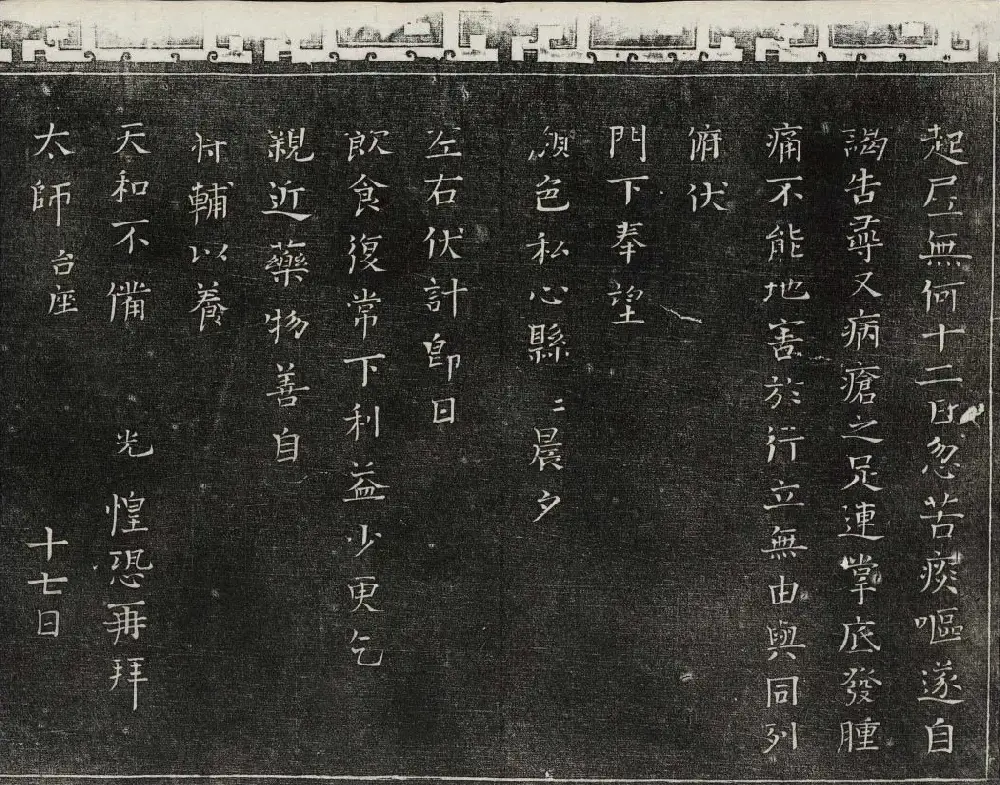 起居無何十二日忽苦痰嘔遂自
謁告尋又病瘡之足連掌底發腫
痛不能地害於行立無由與同列
俯伏
門下奉望
顏色私心縣〻晨夕
左右伏計即日
飲食復常下利益少更乞
親近藥物善自
將輔以養
天和不備 光 惶恐再拜
太師 台座 十七日